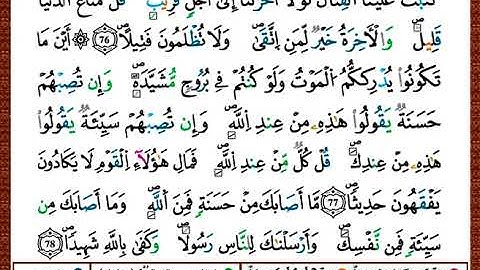 كُتِبَ عَلَيْنَا الْقِتَالُ لَوْلَا أَخَّرْتَنَا إِلَىٰ أَجَلٍ قَرِيبٍ ۗ قُلْ مَتَاعُ الدُّنْيَا
قَلِيلٌ وَالْآخِرَةُ خَيْرٌ لِّمَنِ اتَّقَىٰ وَلَا تُظْلَمُونَ فَتِيلًا ﴿76﴾ أَيْنَ مَا
تَكُونُوا يُدْرِككُّمُ الْمَوْتُ وَلَوْ كُنتُمْ فِي بُرُوجٍ مُّشَيَّدَةٍ ۗ وَإِن تُصِبْهُمْ
حَسَنَةٌ يَقُولُوا هَٰذِهِ مِنْ عِندِ اللَّهِ ۖ وَإِن تُصِبْهُمْ سَيِّئَةٌ يَقُولُوا
هَٰذِهِ مِنْ عِندِكَ ۚ قُلْ كُلٌّ مِّنْ عِندِ اللَّهِ ۖ فَمَالِ هَٰؤُلَاءِ الْقَوْمِ لَا يَكَادُونَ
يَفْقَهُونَ حَدِيثًا ﴿77﴾ مَّا أَصَابَكَ مِنْ حَسَنَةٍ فَمِنَ اللَّهِ ۖ وَمَا أَصَابَكَ مِن
سَيِّئَةٍ فَمِن نَّفْسِكَ ۚ وَأَرْسَلْنَاكَ لِلنَّاسِ رَسُولًا ۚ وَكَفَىٰ بِاللَّهِ شَهِيدًا ﴿78﴾